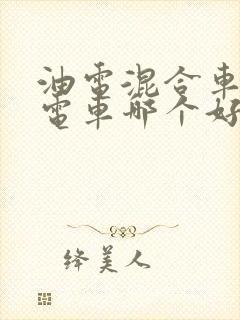 油電混合車
電車哪个好
绛美人